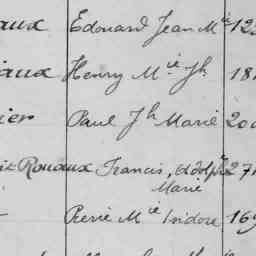 aux Edouard Jean M^ie 12
aux Henry M^ie J^h 18
ier Paul J^h Marie 20
Rouaux Francis, Adolph^e 27
Marie
Pierre M^ie Isidore 16